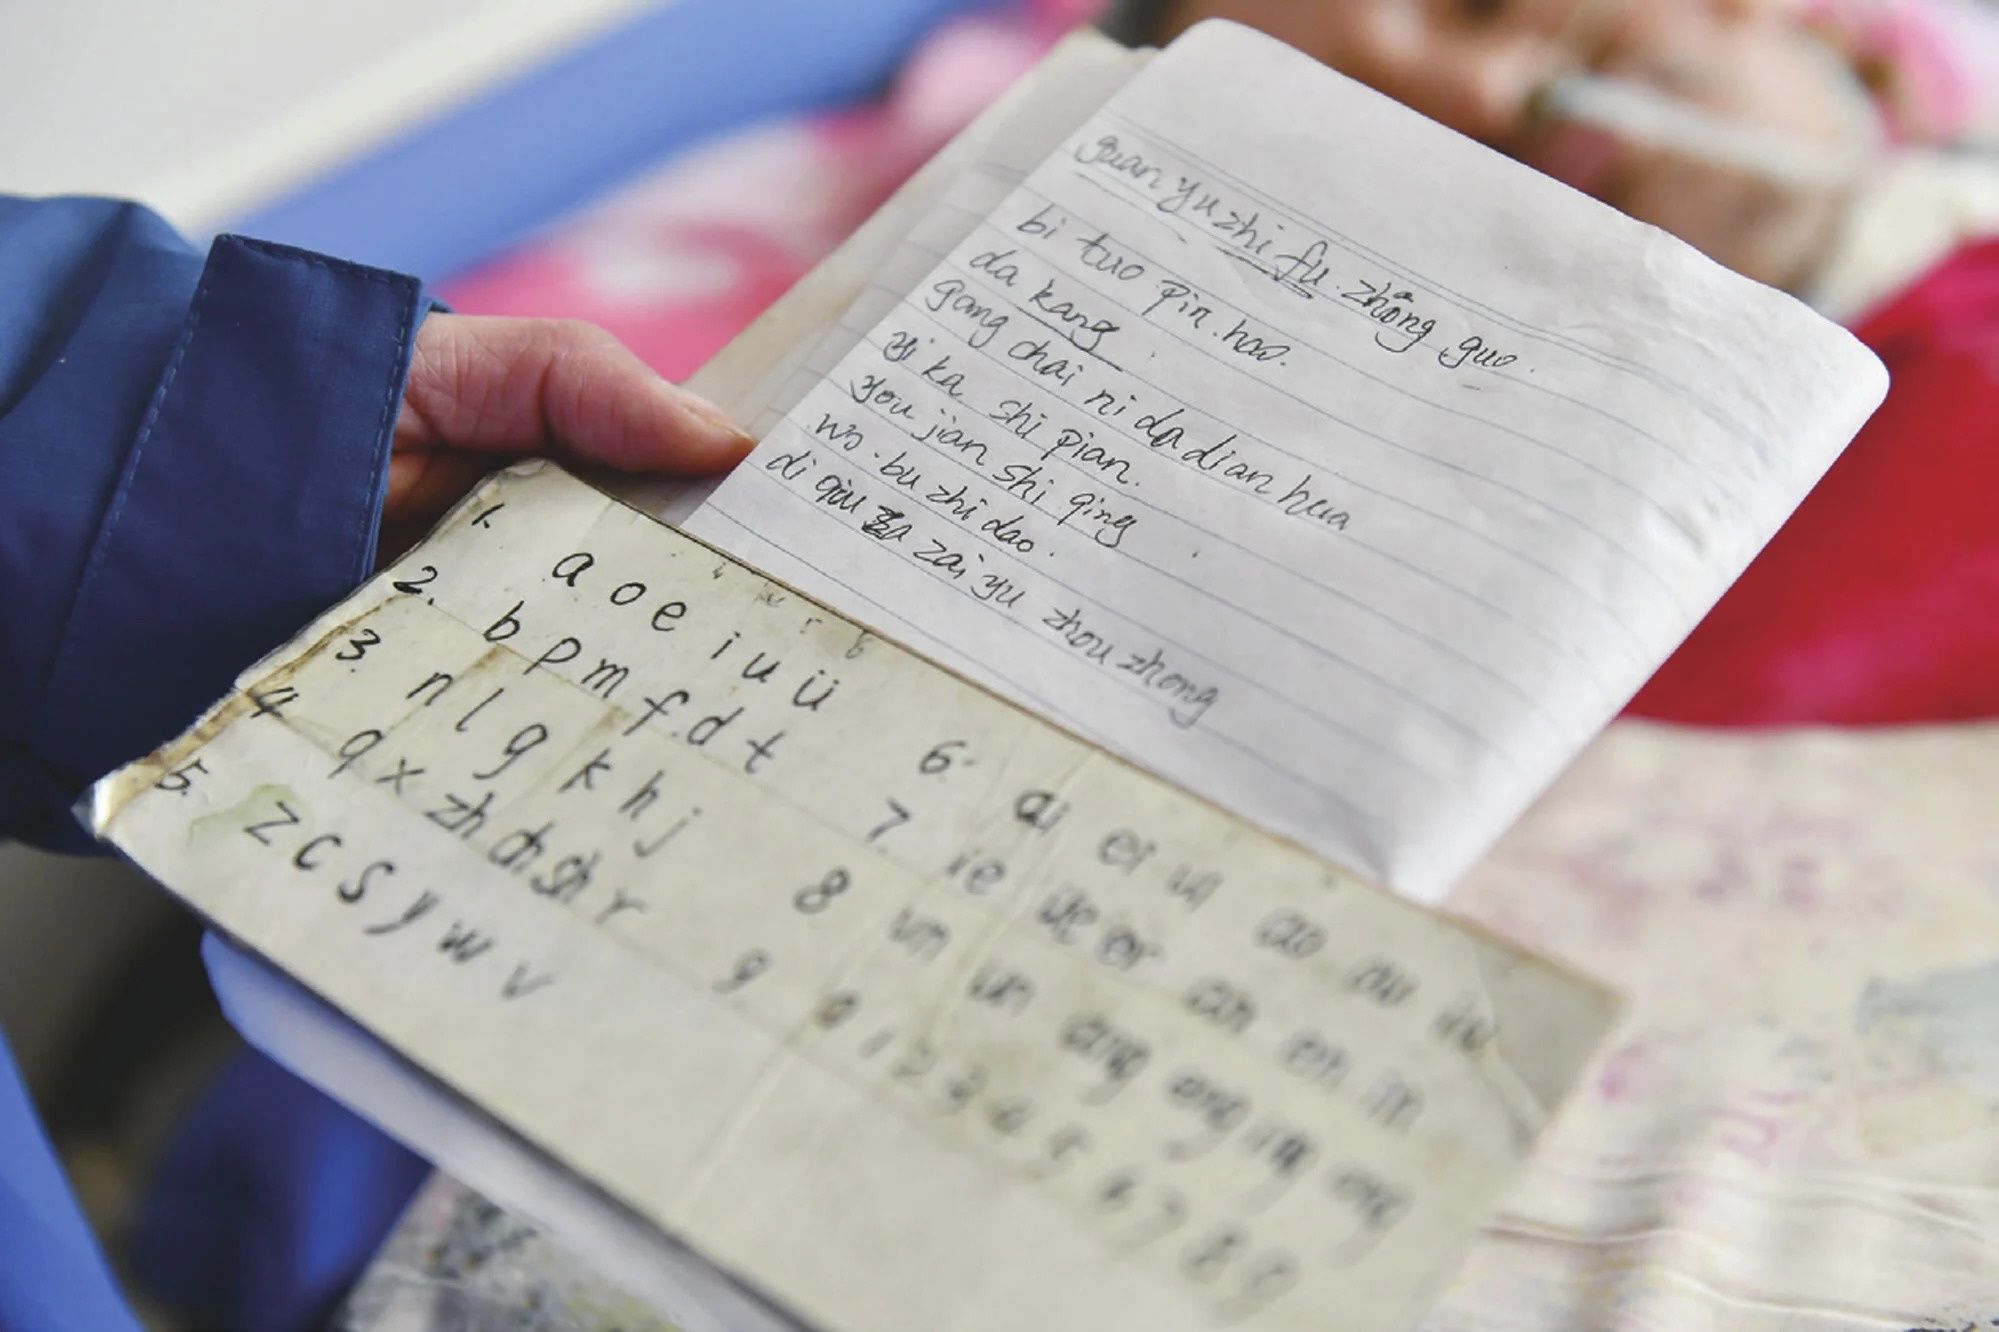 guan yu zhi fu zhōng guo.
bi tuo pin. hao.
da kang
gang chai ni da dian hua
yi ka shi pian.
you jian shi qing
wo. bu zhi dao.
di qiu zai yu zhou zhong
1. a o e i u ü
2. b p m f d t
3. n l g k h j
4 q x zh ch sh r
5. z c s y w v
6. ai ei ui ao ou iu
7. ie üe er an en in
8 un ün ang eng ing ong
9 0 1 2 3 4 5 6 7 8 9